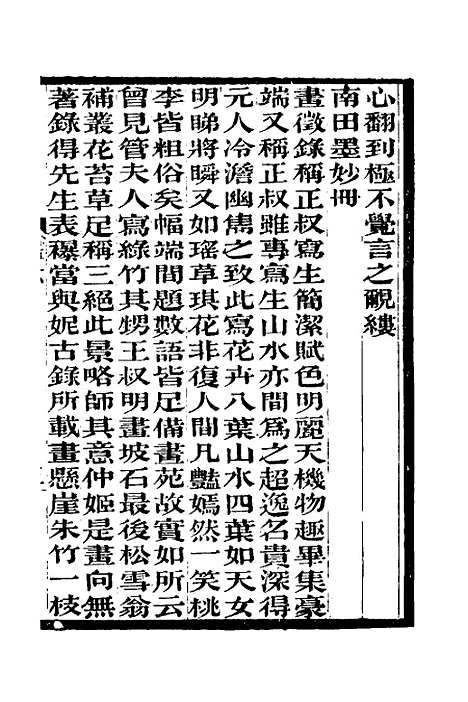 心翻到極不覺言之覼縷
南田墨妙冊
畫徵錄稱正叔寫生簡潔賦色明麗天機物趣畢集豪
端又稱正叔雖專寫生山水亦間為之超逸名貴深得
元人冷澹幽雋之致此寫花卉八葉山水四葉如天女
明睇將瞬又如瑤草琪花非復人間凡豔嫣然一笑桃
李皆粗俗矣幅端間題數語皆足備畫苑故實如所云
曾見管夫人寫綠竹其甥王叔明畫坡石最後松雪翁
補叢花苔草足稱三絕此景略師其意仲姬是畫向無
著錄得先生表襮當與妮古錄所載畫懸崖朱竹一枝